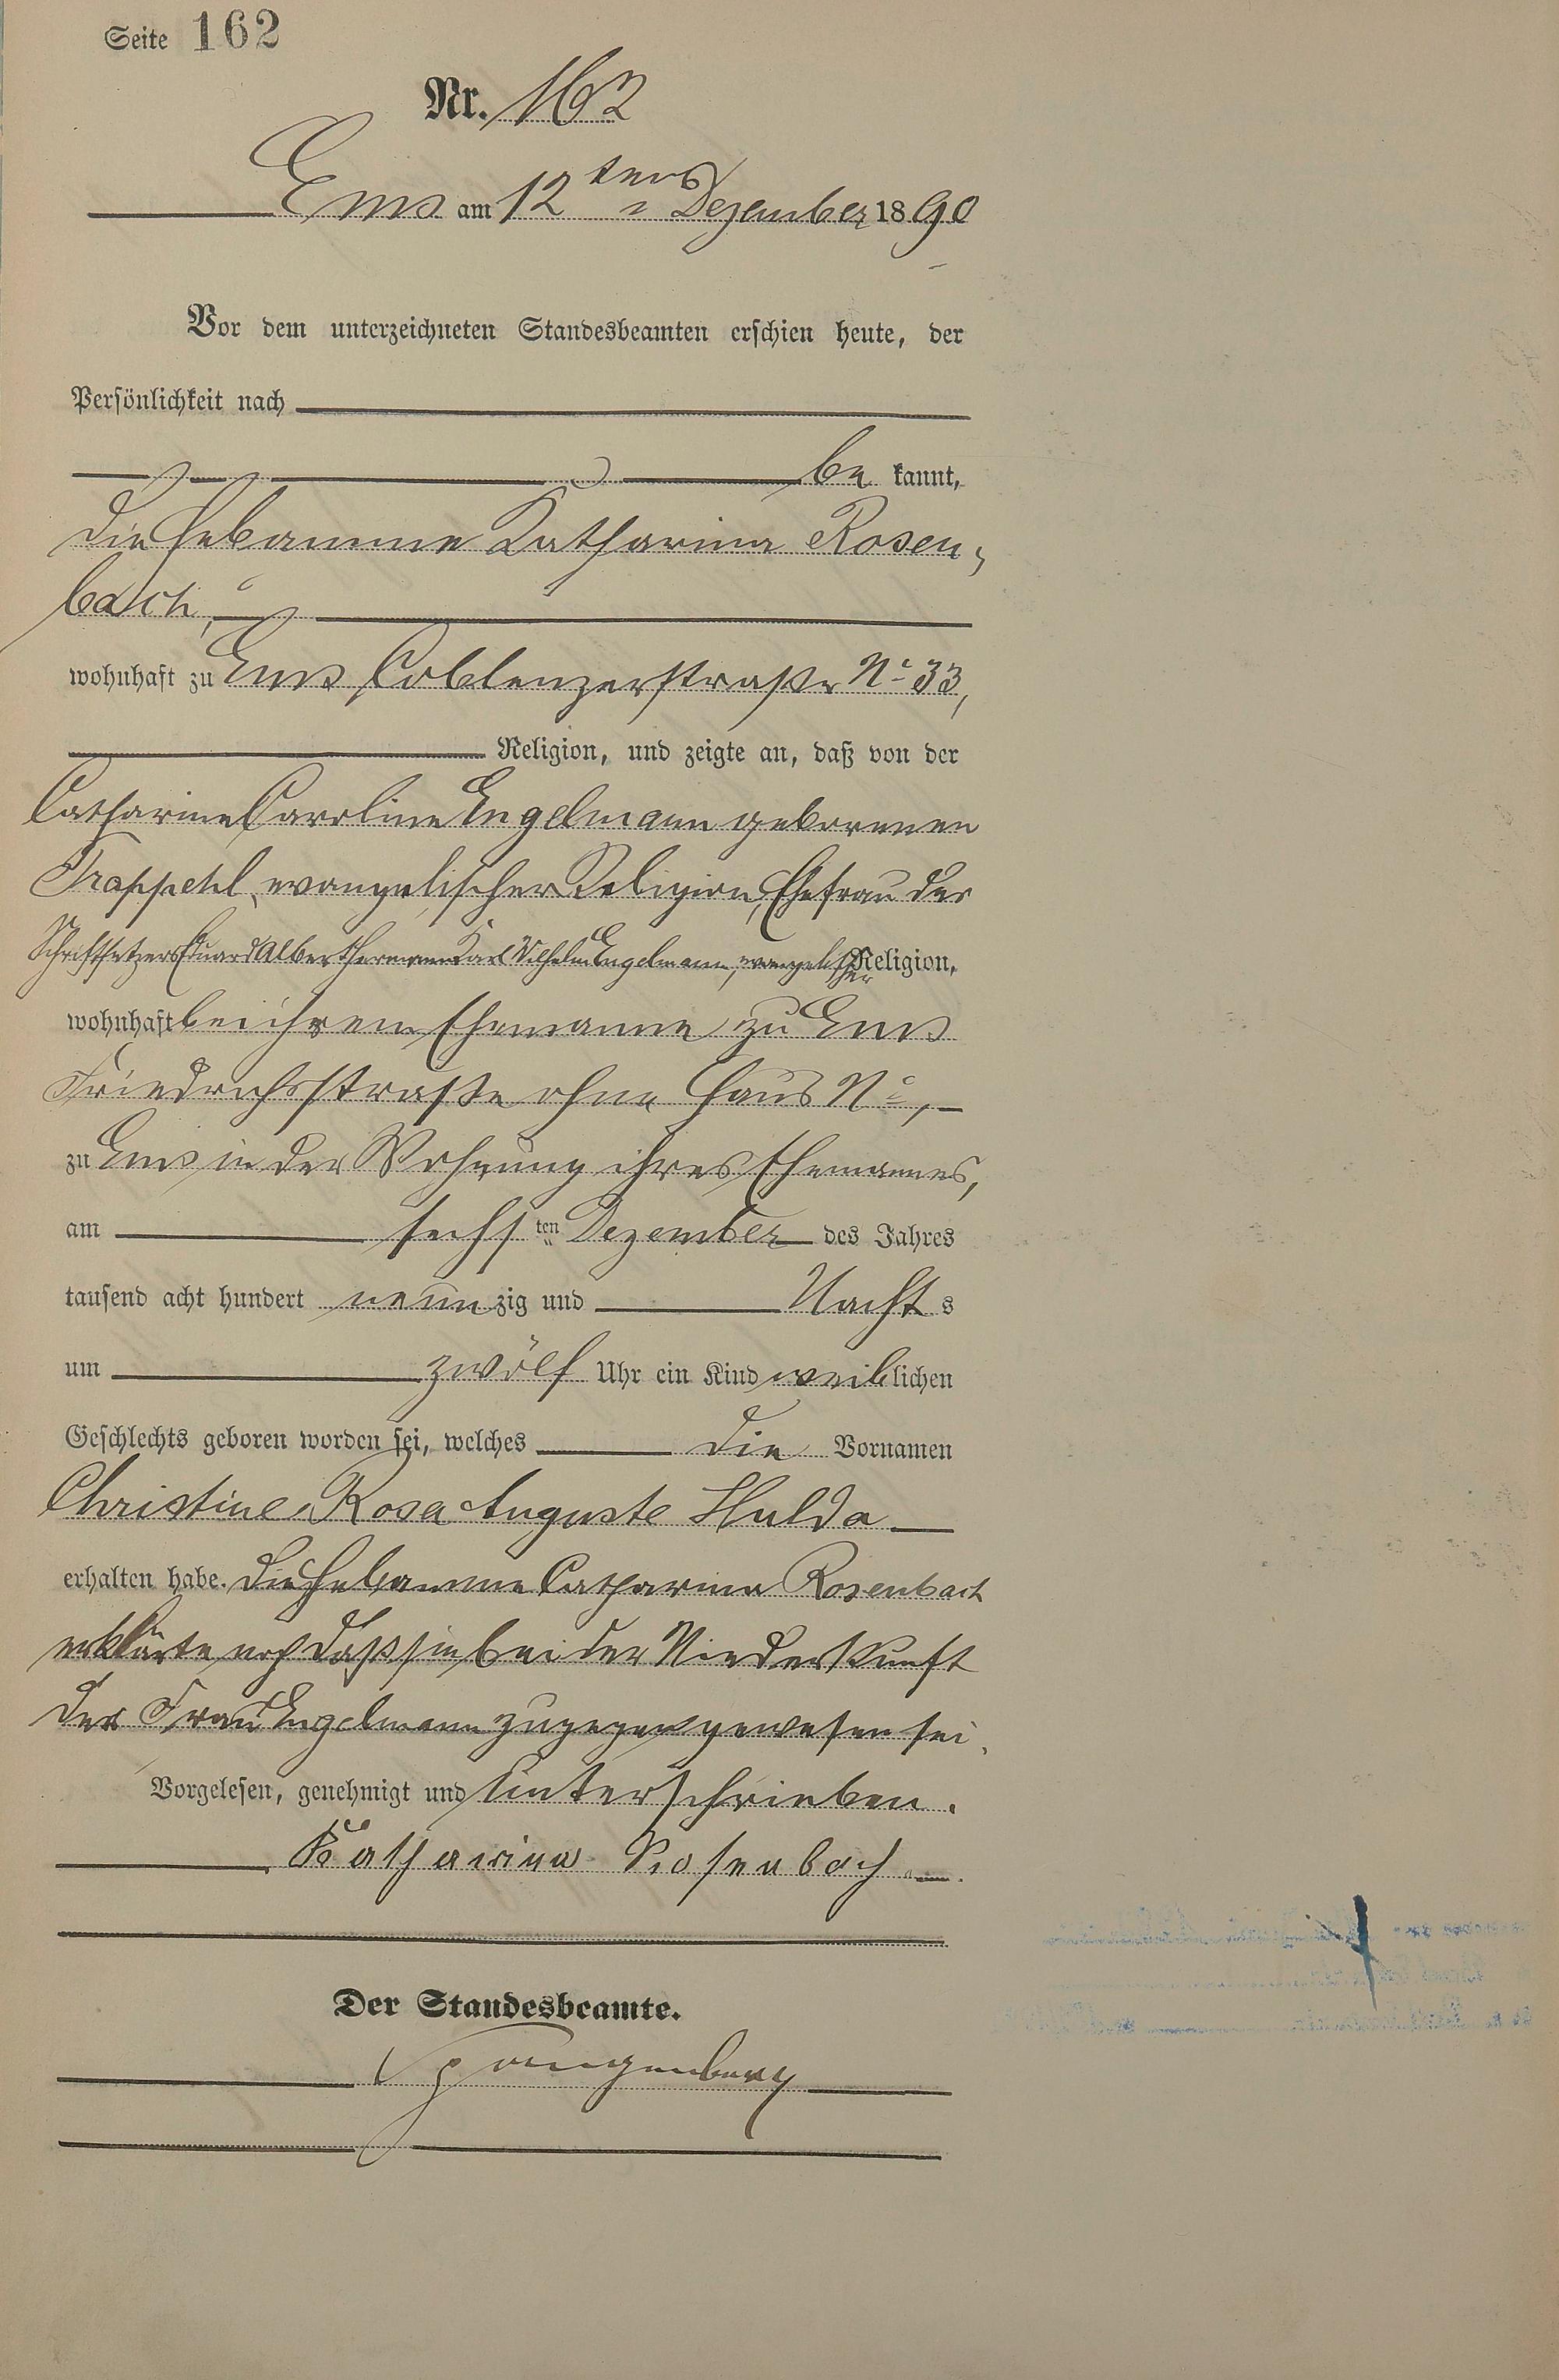 Seite 162
Nr. 162
Ems am 12tens Dezember 1890
Vor dem unterzeichneten Standesbeamten erschien heute, der
Persönlichkeit nach
be kannt,
die Hebamme Katharina Rosen,
bach,
wohnhaft zu Ems Coblenzerstraße No 33,
Religion, und zeigte an, daß von der
Catharine Caroline Engelmann geborenen
Trappehl, evangelischer Religion, Ehefrau des
Schriftsetzers Eduard Albert Hermann Karl Wilhelm Engelmann, evangelischer Religion,
wohnhaft bei ihrem Ehemanne zu Ems
Friedrichsstraße ohne Haus No,
zu Ems in der Wohnung ihres Ehemannes,
am sechsten Dezember des Jahres
tausend acht hundert neunzig und Nachts
um zwölf Uhr ein Kind weiblichen
Geschlechts geboren worden sei, welches die Vornamen
Christine Rosa Auguste Hulda
erhalten habe. Die Hebamme Catharina Rosenbach
erklärte noch daß sie bei der Niederkunft
der Frau Engelmann zugegen gewesen sei.
Vorgelesen, genehmigt und unterschrieben.
Katharina Rosenbach
Der Standesbeamte.
Spangenberg